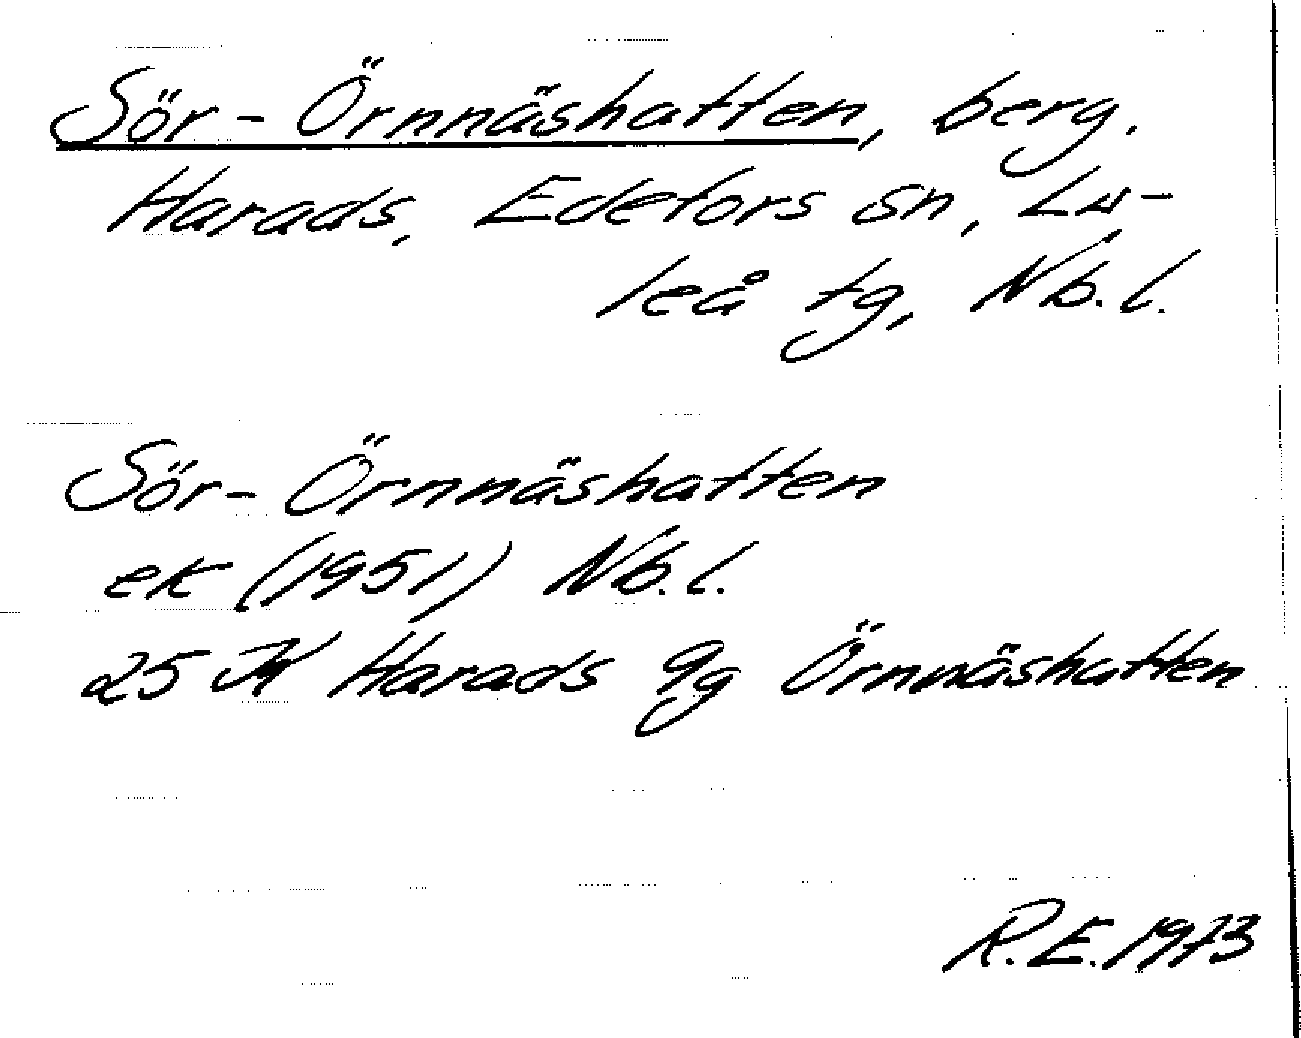 Sör-Örnnäshatten, berg.
Harads, Edefors sn, Lu-
leå tg, Nb.l.
Sör-Örnnäshatten
ek (1951) Nb.l.
25 M Harads 9g Örnnäshatten
R.E. 1973